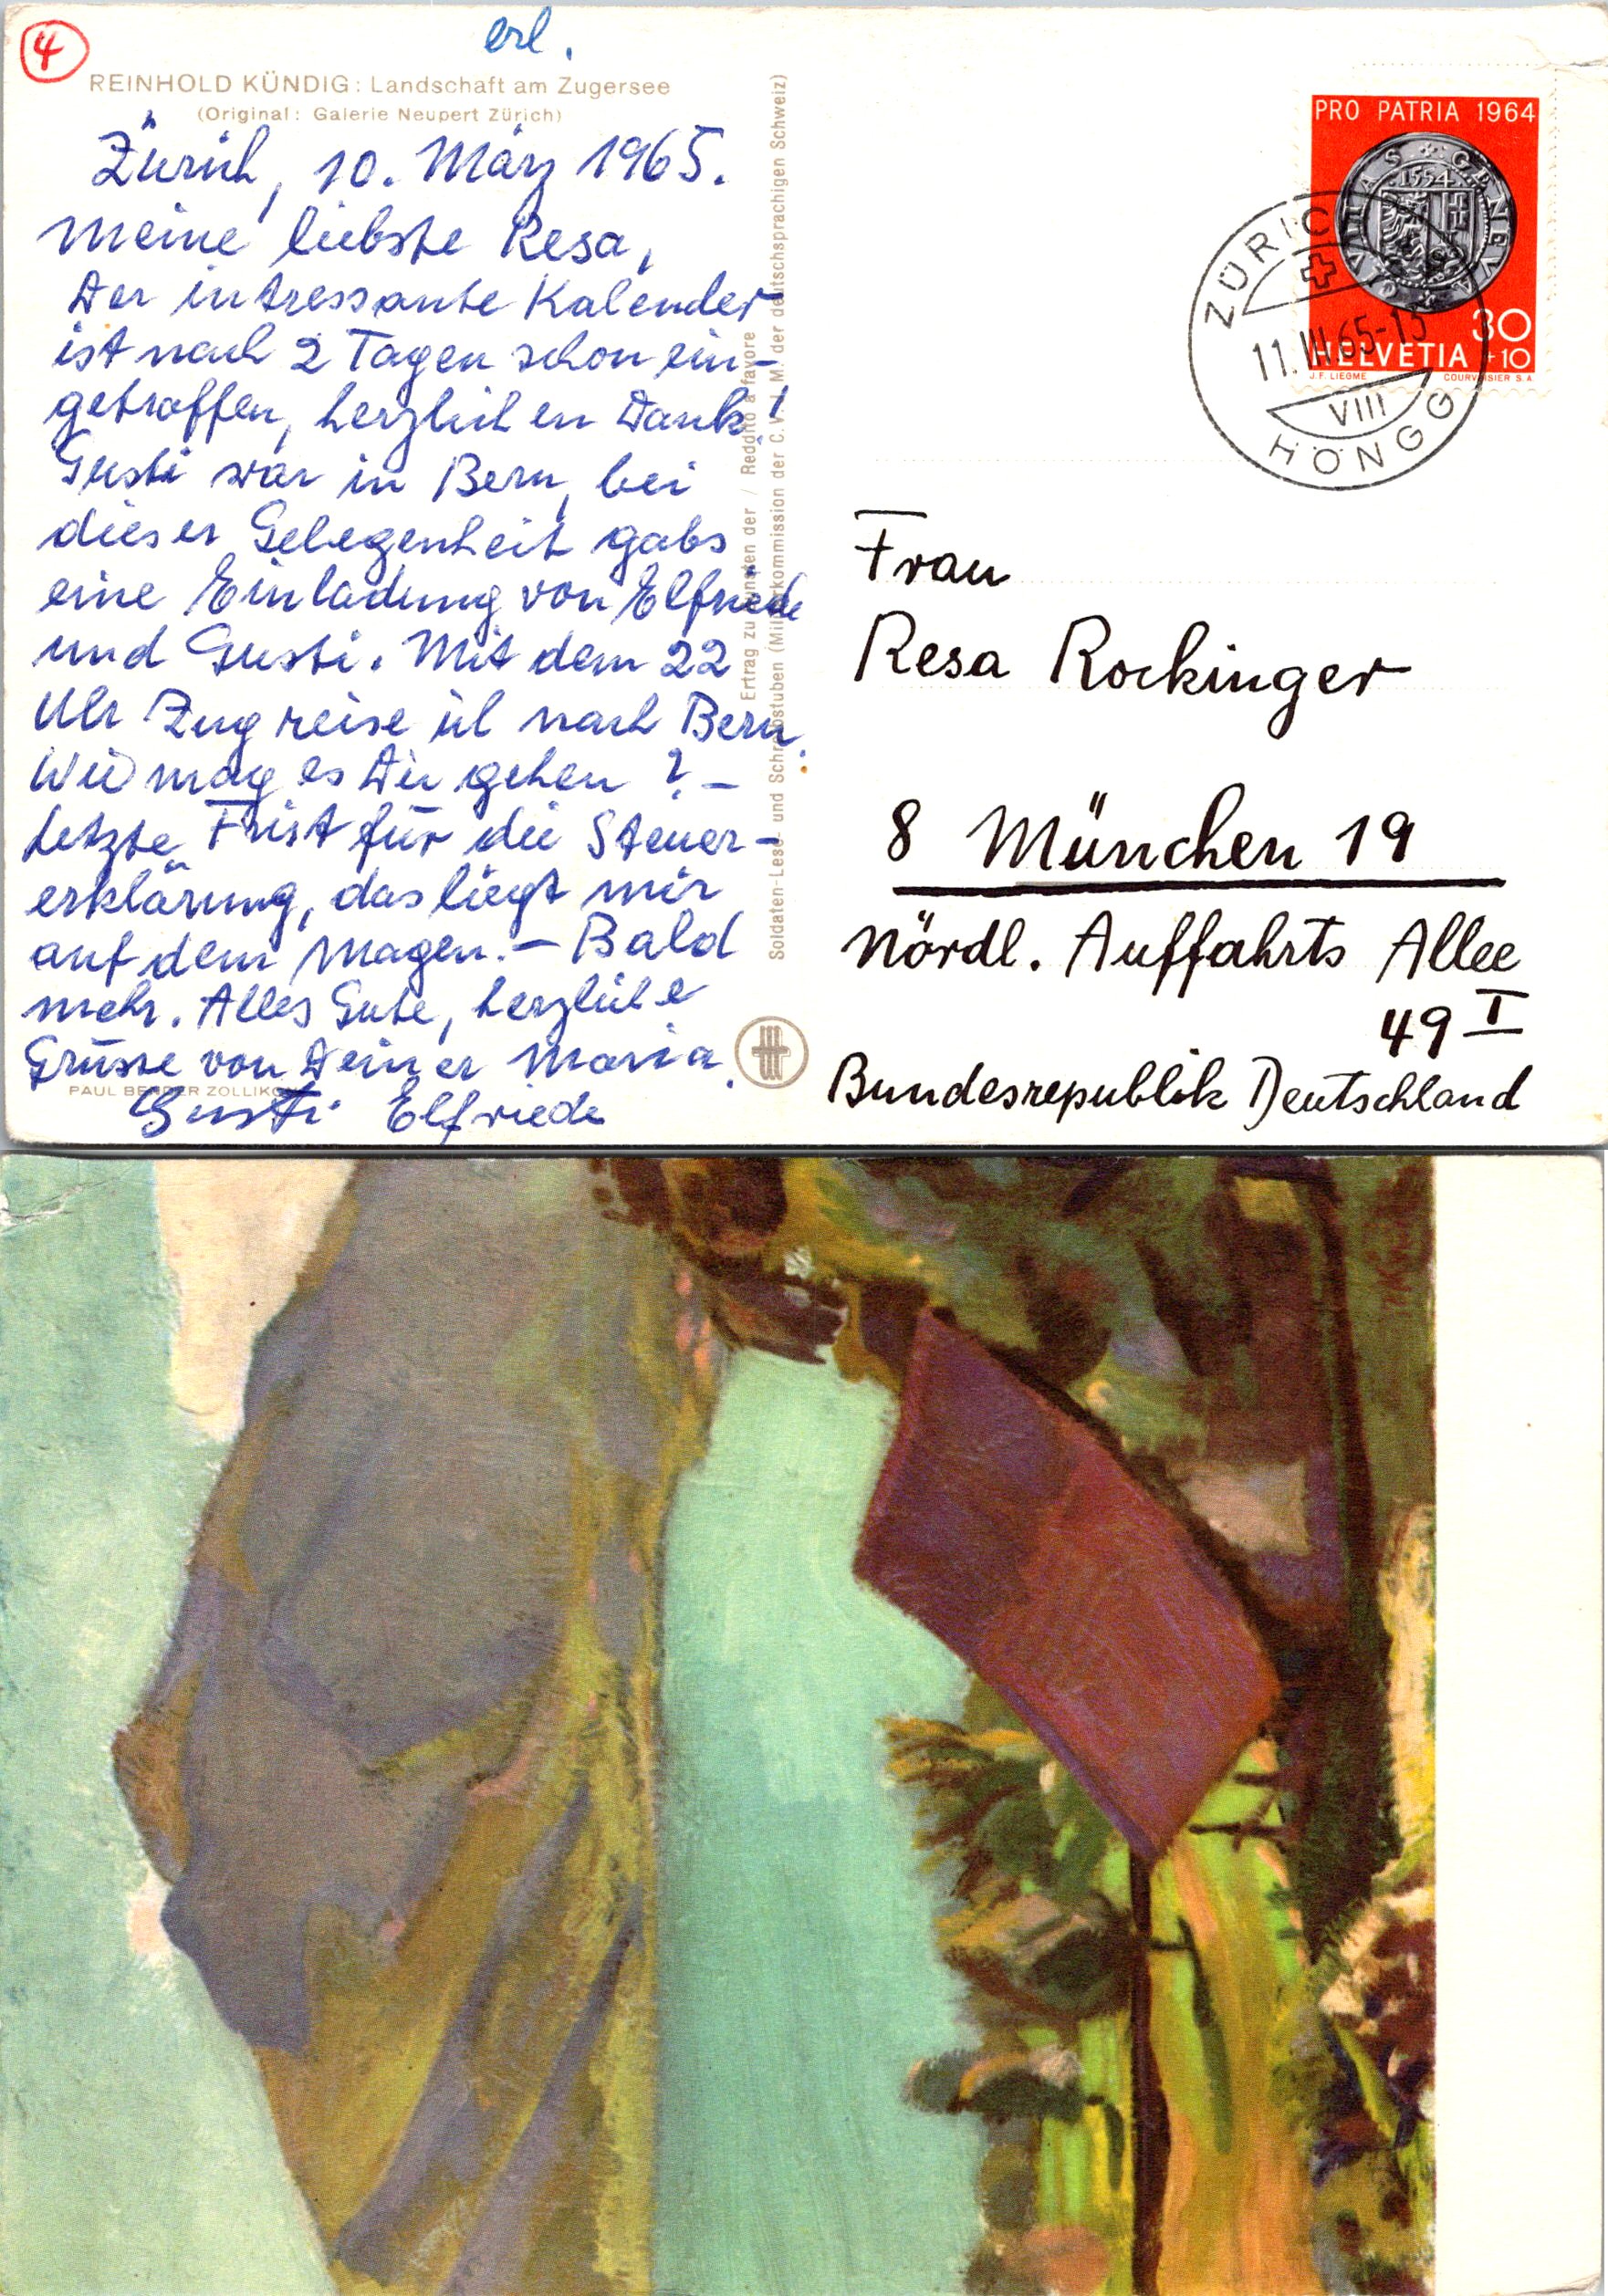 4
erl.
REINHOLD KÜNDIG: Landschaft am Zugersee
(Original: Galerie Neupert Zürich)
Zürich, 10. März 1965.
Meine liebste Resa,
Der intressante Kalender
ist nach 2 Tagen schon ein-
getroffen, herzlichen Dank!
Gusti war in Bern, bei
dieser Gelegenheit gabs
eine Einladung von Elfriede
und Gusti. Mit dem 22
Uhr Zug reise ich nach Bern.
Wie mag es Dir gehen? –
Letzte Frist für die Steuer-
erklärung, das liegt mir
auf dem Magen. – Bald
mehr. Alles Gute, herzliche
Grüsse von Deiner Maria.
PAUL BENDER ZOLLIKON
Gusti Elfriede
Ertrag zu Gunsten der / Reddito a favore
Soldaten-Lese- und Schreibstuben (Militärkommission der C.V.J.M. der deutschsprachigen Schweiz)
PRO PATRIA 1964
GENEVA CIVITAS
1554
30
+10
HELVETIA
J.F. LIEGME COURVOISIER S.A.
ZÜRICH
11.III.65-15
VIII
HÖNGG
Frau
Resa Rockinger
8 München 19
Nördl. Auffahrts Allee
49 I
Bundesrepublik Deutschland